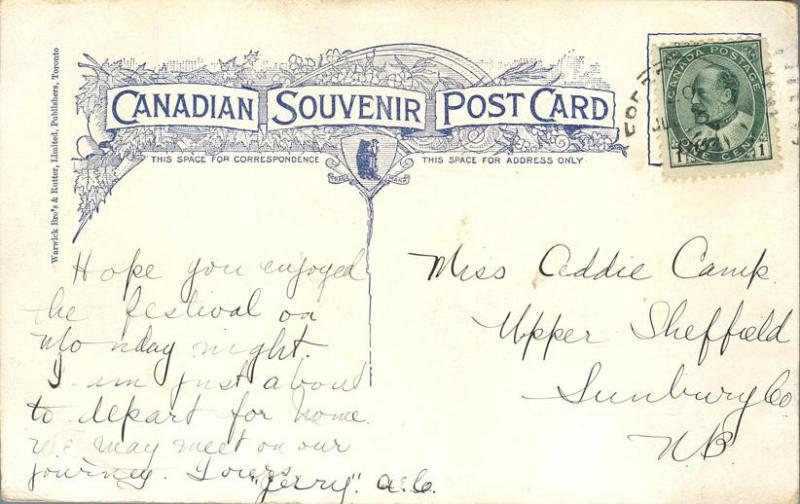 CANADIAN SOUVENIR POST CARD
THIS SPACE FOR CORRESPONDENCE
THIS SPACE FOR ADDRESS ONLY
TRADE MARK
Warwick Bro's & Rutter, Limited, Publishers, Toronto
CANADA POSTAGE
1 ONE CENT 1
Hope you enjoyed
the festival on
Monday night.
I am just about
to depart for home.
We may meet on our
journey. Yours
"Jerry".
Miss Addie Camp
Upper Sheffield
Sunbury Co
N.B.